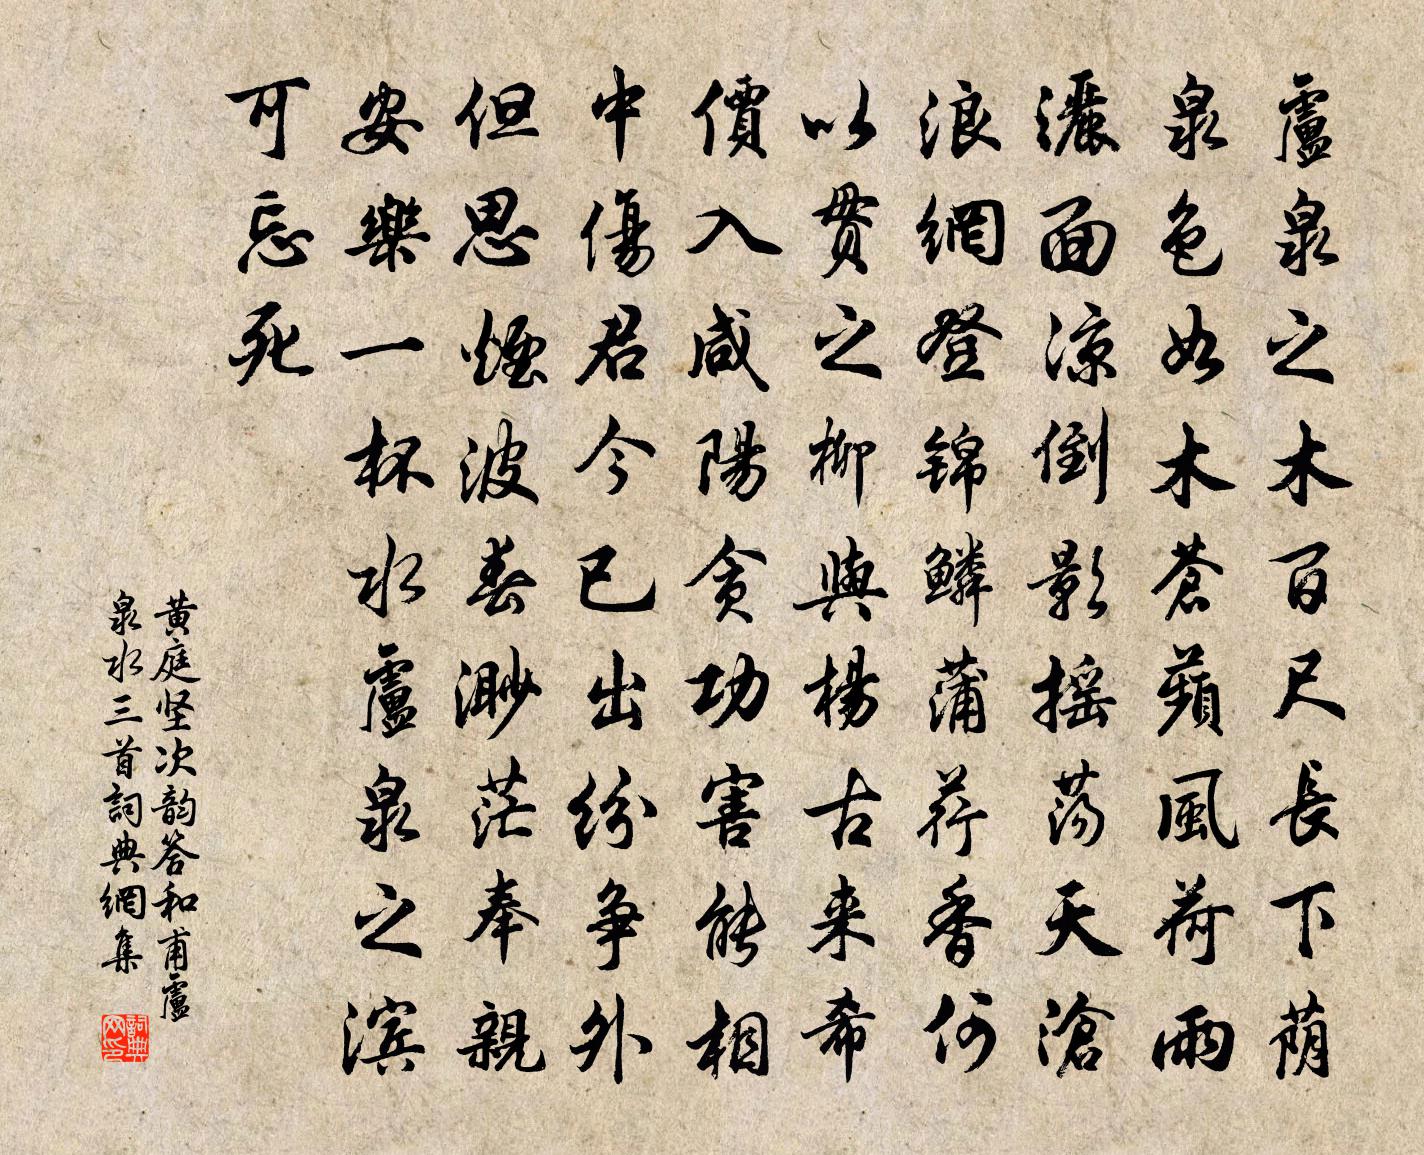 盧泉之木百尺長下荫
泉色如木蒼蘋風荷雨
灑面涼倒影摇荡天滄
浪網登錦鳞蒲荇香何
以贯之柳與楊古来希
價入咸陽贪功害能相
中傷君今已出纷争外
但思煙波春渺茫奉親
安樂一杯水盧泉之滨
可忘死
黄庭坚次韵答和甫盧
泉水三首詞典網集
詞典网印